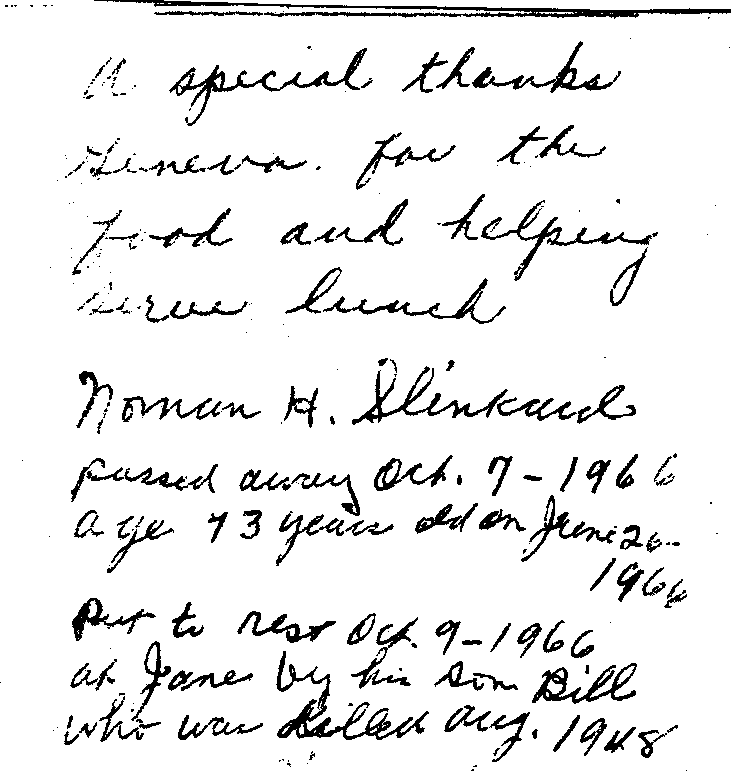 A special thanks
Geneva. for the
food and helping
serve lunch
Norman H. Slinkard
passed away Oct. 7 - 1966
age 73 years old on June 26 -
1966
Put to rest Oct. 9 - 1966
at Jane by his son Bill
who was killed Aug. 1948